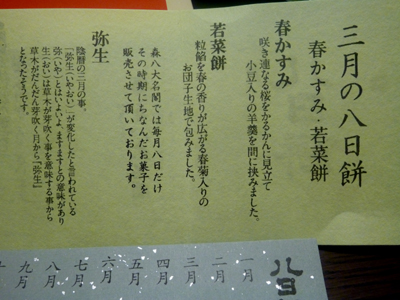 三月の八日餅
春かすみ・若菜餅
春かすみ
咲き連なる桜をかるかんに見立て
小豆入りの羊羹を間に挟みました。
若菜餅
粒餡を春の香りが広がる春菊入りの
お団子生地で包みました。
森八大名閣では毎月八日だけ
その時期にちなんだお菓子を
販売させて頂いております。
弥生
陰暦の三月の事。
「弥生(いやおい)」が変化したと言われている
弥(いや)とはいよいよ、ますますとの意味があり
生(おい)は草木が芽吹く事を意味する事から
草木がだんだん芽吹く月から「弥生」
となったそうです。
一月
二月
三月
四月
五月
六月
七月
八月
九月
十